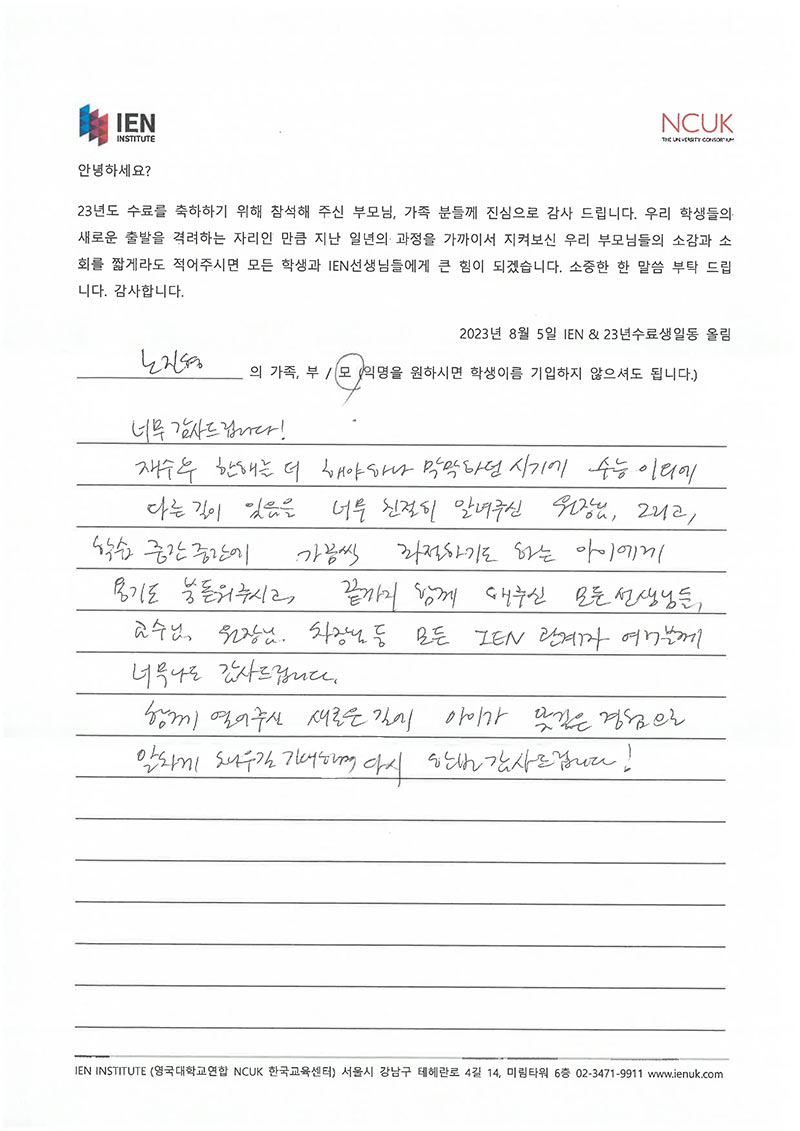 IEN
INSTITUTE
NCUK
THE UNIVERSITY CONSORTIUM
안녕하세요?
23년도 수료를 축하하기 위해 참석해 주신 부모님, 가족 분들께 진심으로 감사 드립니다. 우리 학생들의
새로운 출발을 격려하는 자리인 만큼 지난 일년의 과정을 가까이서 지켜보신 우리 부모님들의 소감과 소
회를 짧게라도 적어주시면 모든 학생과 IEN선생님들에게 큰 힘이 되겠습니다. 소중한 한 말씀 부탁 드립
니다. 감사합니다.
2023년 8월 5일 IEN & 23년수료생일동 올림
노진영 의 가족, 부 / 모 (익명을 원하시면 학생이름 기입하지 않으셔도 됩니다.)
너무 감사드립니다!
재수우 한해를 더 해야하나 막막하던 시기에 수능 이외에
다른 길이 있음을 너무 친절히 알려주신 원장님, 그리고,
학습 중간중간에 가끔씩 좌절하기도 하는 아이에게
용기도 북돋워주시고, 끝까지 함께 해주신 모든 선생님들,
교수님, 원장님. 차장님등 모든 IEN 관계자 여러분께
너무나도 감사드립니다.
함께 열어주신 새로운 길에 아이가 맛깊은 경험으로
알차게 채우길 기대하며 다시 한번 감사드립니다!
IEN INSTITUTE (영국대학교연합 NCUK 한국교육센터) 서울시 강남구 테헤란로 4길 14, 미림타워 6층 02-3471-9911 www.ienuk.com